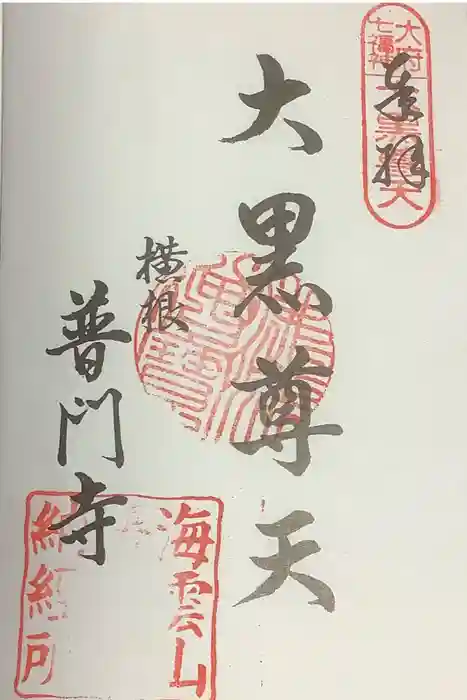 奉拝
大府
七福神
大黒尊天
横根
普門寺
海雲山